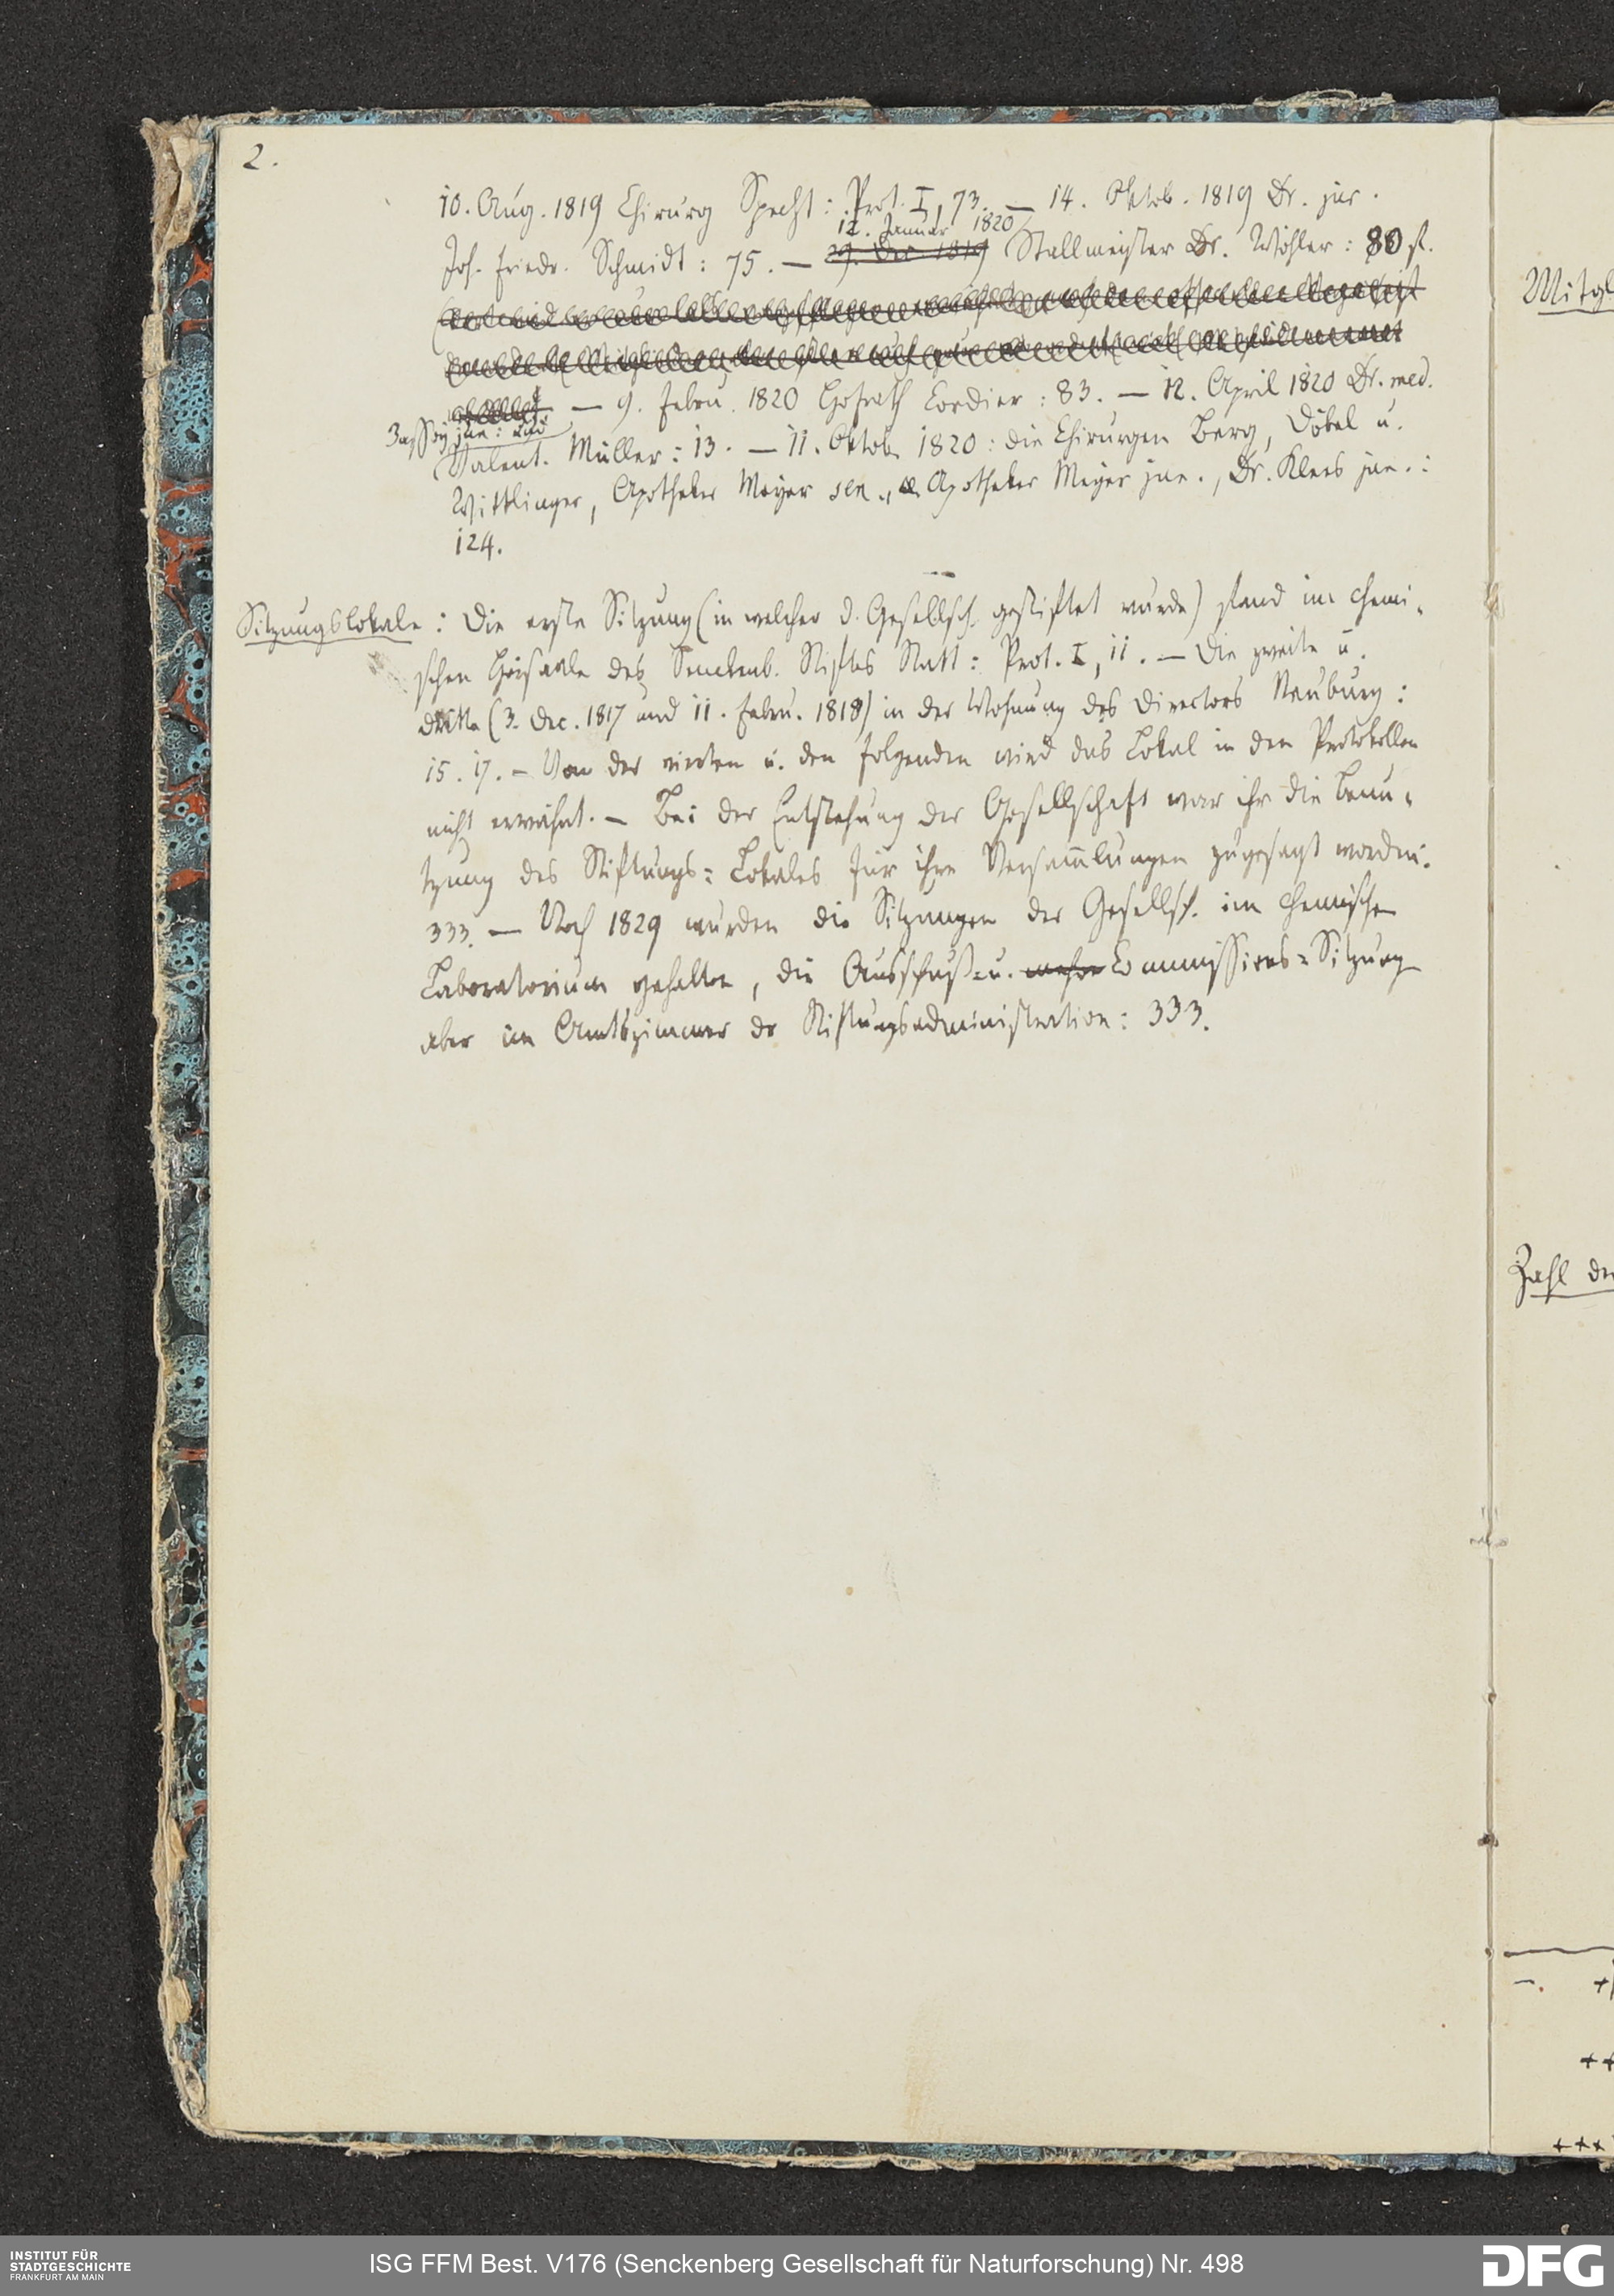 2.
10. Aug. 1819 Chirurg Specht: Prot. I, 73. — 14. Oktob. 1819 Dr. jur.
12. Januar 1820
Joh. Friedr. Schmidt: 75. — 29. Dec 1819 Stallmeister Dr. Wöhler: 80 ff.
— 9. Febru. 1820 Hofrath Cordier: 83. — 12. April 1820 Dr. med.
Jassoy jun: und
Valent. Müller: 13. — 11. Oktob. 1820: die Chirurgen Berg, Döbel u.
Wittlinger, Apotheker Meyer sen., Apotheker Meyer jun., Dr. Kloos jun.:
124.
Sitzungslokale: Die erste Sitzung (in welcher d. Gesellsch. gestiftet wurde) fand im chemi-
schen Hörsaale des Senckenb. Stiftes Statt: Prot. I, 11. — Die zweite u.
dritte (3. Dec. 1817 und 11. Febru. 1818) in der Wohnung des Directors Neuburg:
15. 17. — Von der vierten u. den folgenden wird das Lokal in den Protokollen
nicht erwähnt. — Bei der Entstehung der Gesellschaft war ihr die Benu-
tzung des Stiftungs-Lokales für ihre Versammlungen zugesagt worden:
333. — Noch 1829 wurden die Sitzungen der Gesellsch. im chemischen
Laboratorium gehalten, die Ausschuß- u. Commissions-Sitzung
aber im Amtszimmer der Stiftungsadministration: 333.
Mitgl
Zahl der
INSTITUT FÜR
STADTGESCHICHTE
FRANKFURT AM MAIN
ISG FFM Best. V176 (Senckenberg Gesellschaft für Naturforschung) Nr. 498
DFG